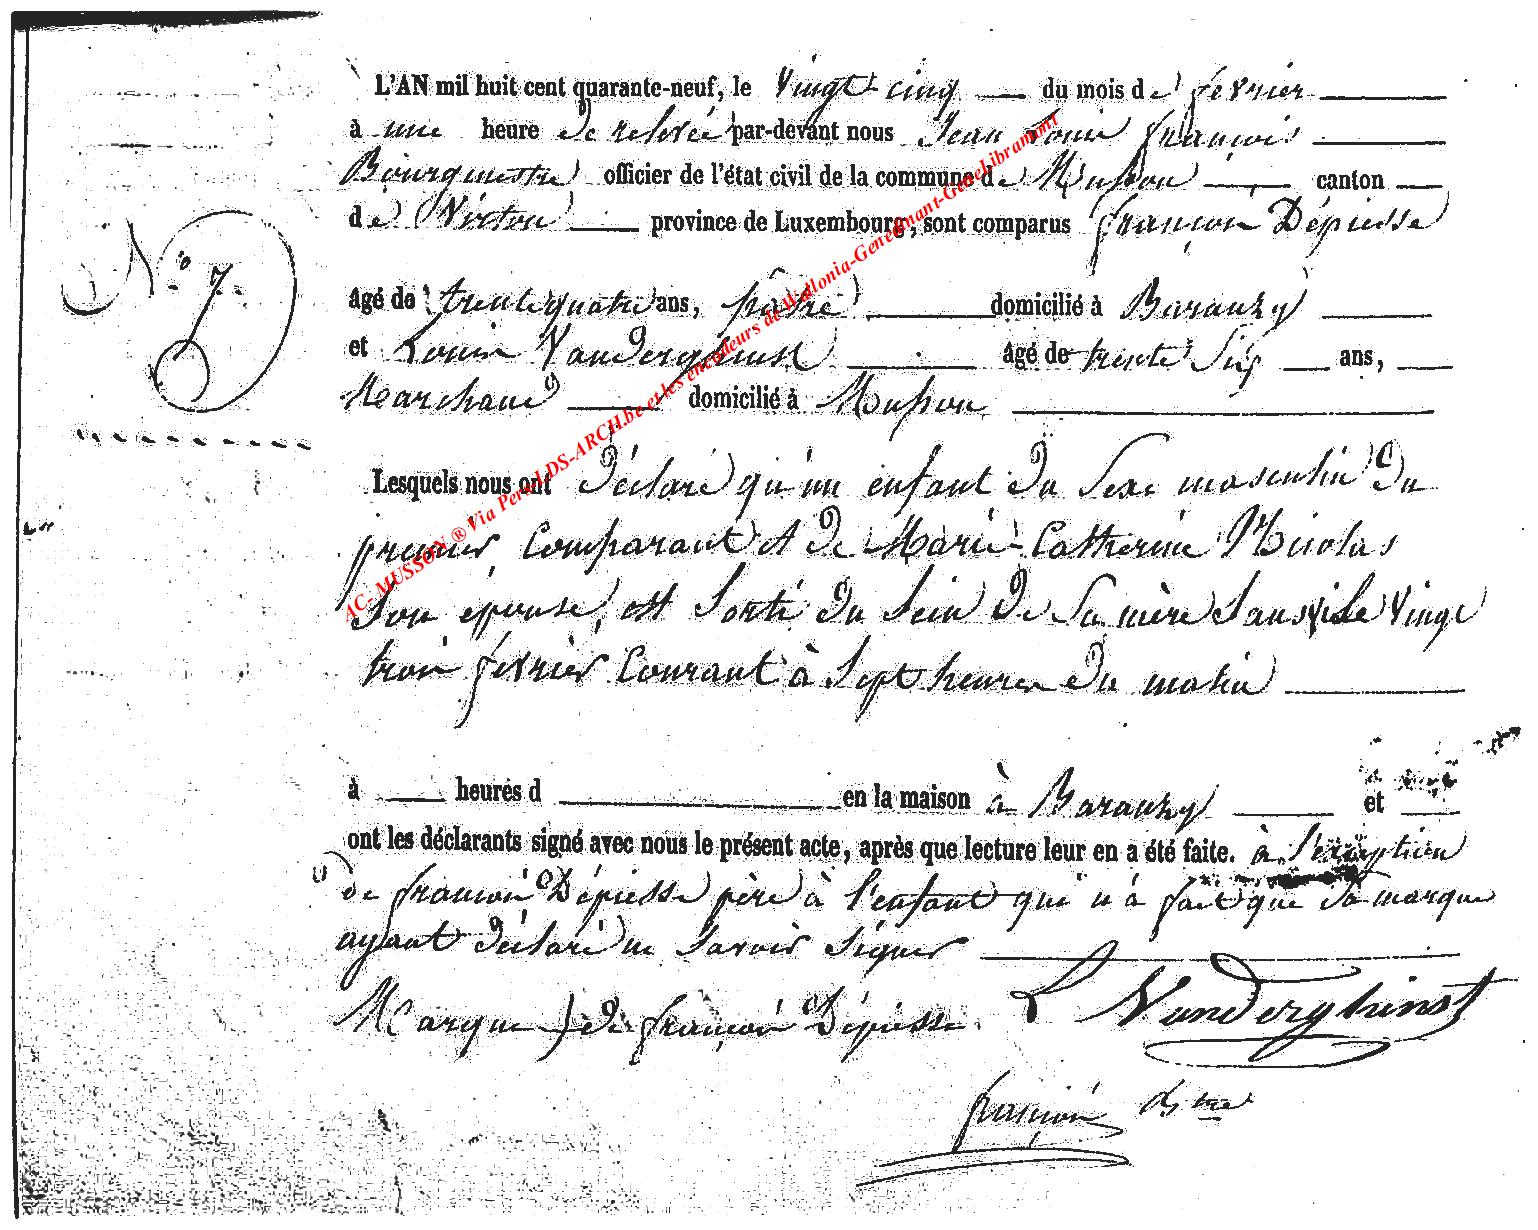 L'AN mil huit cent quarante-neuf, le Vingt cinq du mois de février
à une heure de relevée par-devant nous Jean Louis françois
Bourgmestre officier de l'état civil de la commune de Musson canton
de Virton province de Luxembourg, sont comparus françois Dépiesse
N° 7
âgé de trente quatre ans, pâtre domicilié à Baranzy
et Louis Vanderghinst âgé de trente Six ans,
Marchand domicilié à Musson
Lesquels nous ont déclaré qu'un enfant du Sexe masculin du
premier Comparant et de Marie-Catherine Nicolas
Son épouse, est Sorti du Sein de Sa mère Sans vie Le Vingt
trois février Courant à Sept heures du matin
à heures d en la maison à Baranzy et
ont les déclarants signé avec nous le présent acte, après que lecture leur en a été faite. à l'exception
de françois Dépiesse père à l'enfant qui n'à fait que sa marque
ayant déclaré ne Savoir Signer
Marque ) de françois Dépiesse L Vanderghinst
françois Bgmtre
AC- MUSSON ® Via Pers-LDS-ARCH.be et les encodeurs de Wallonia-Genemnant-GeneLibramont